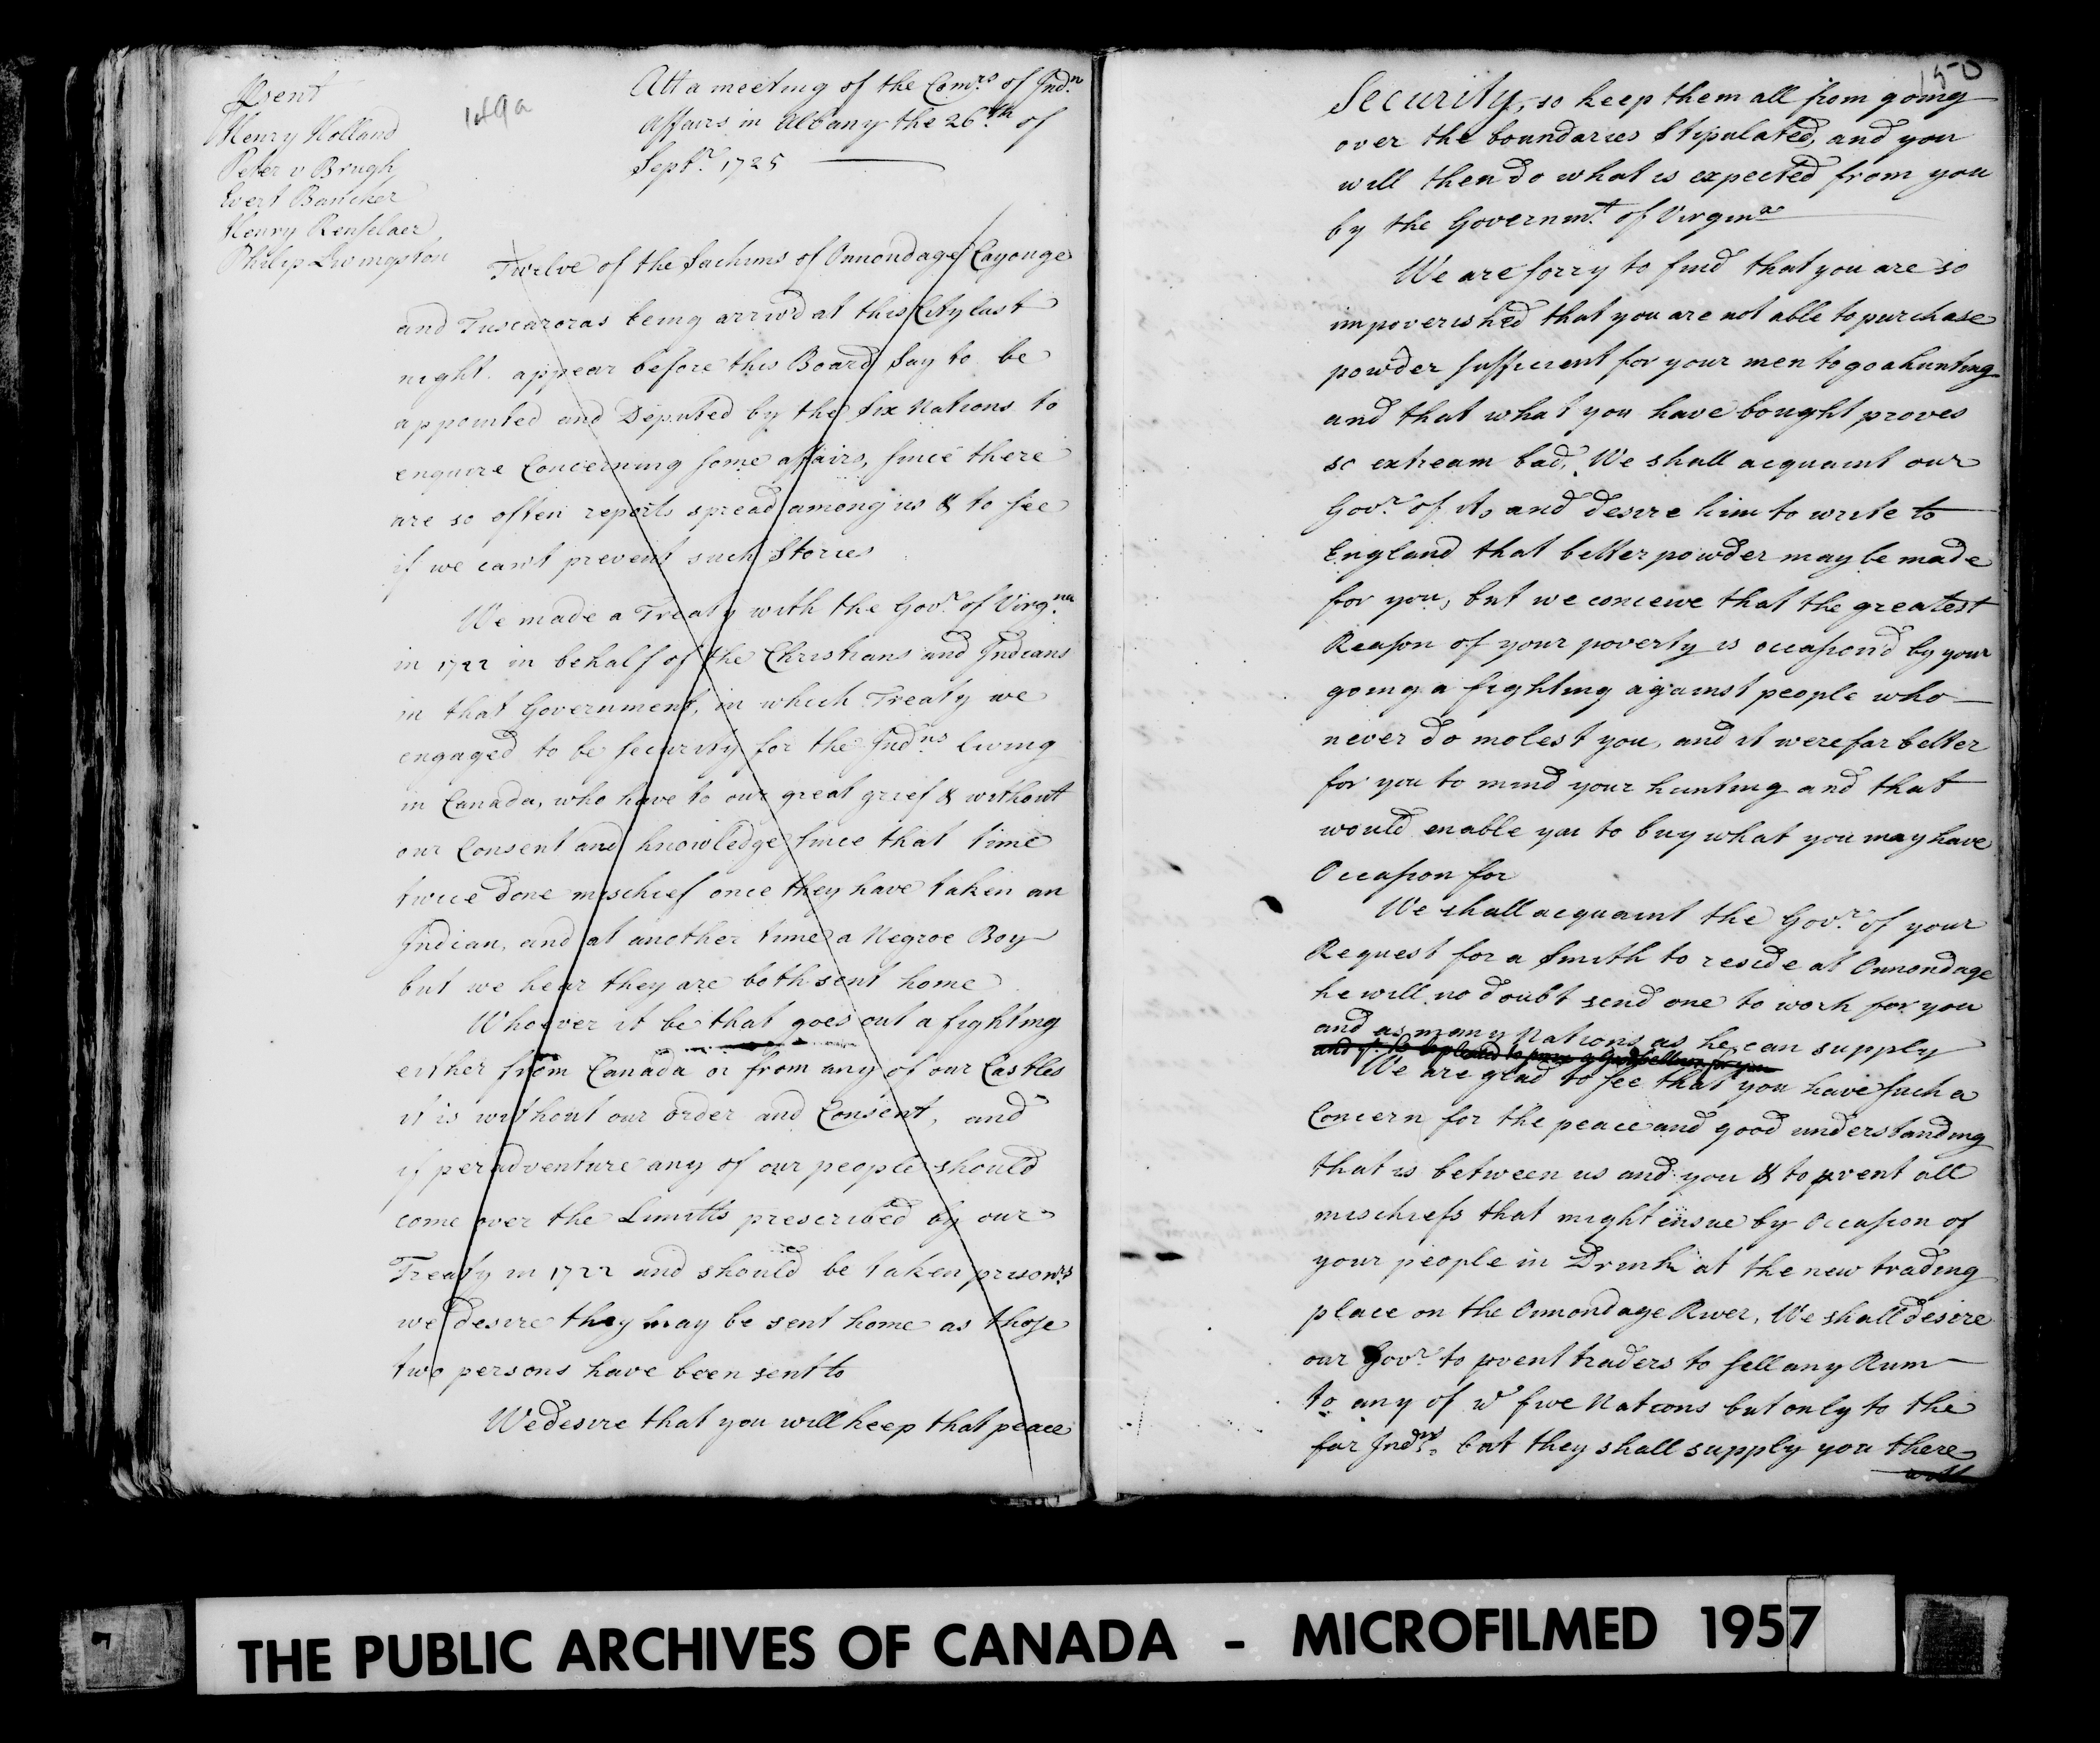 Present
Henry Holland
Peter v Brugh
Evert Bancker
Henry Renselaer
Philip Livingston
149a
Att a meeting of the Comrs. of Indn.
affairs in Albany the 26th of
Septr. 1725
Twelve of the Sachims of Onnondage Cayouge
and Tuscaroras being arrivd at this City last
night appear before this Board Say to be
appointed and Deputed by the Six Nations to
enquire Concerning some affairs, since there
are so often reports spread among us & to see
if we cant prevent such Stories
We made a Treaty with the Govr. of Virgnia
in 1722 in behalf of the Christians and Indians
in that Government, in which Treaty we
engaged to be security for the Indns. living
in Canada, who have to our great grief & without
our Consent and knowledge since that time
twice done mischief once they have taken an
Indian, and at another time a Negroe Boy
but we hear they are both sent home
Whoever it be that goes out a fighting
either from Canada or from any of our Castles
it is without our order and Consent, and
if peradventure any of our people should
come over the Limitts prescribed by our
Treaty in 1722 and should be taken prisonrs
we desire they may be sent home as those
two persons have been sent to
We desire that you will keep that peace
150
Security, so keep them all from going
over the boundaries Stipulated, and you
will then do what is expected from you
by the Governmt. of Virginia
We are sorry to find that you are so
impoverished that you are not able to purchase
powder sufficient for your men to go a hunting
and that what you have bought proves
so extream bad, We shall acquaint our
Govr. of it, and desire him to write to
England that better powder may be made
for you, but we conceive that the greatest
Reason of your poverty is occasion'd by your
going a fighting against people who
never do molest you, and it were far better
for you to mind your hunting and that
would enable you to buy what you may have
Occasion for
We shall acquaint the Govr. of your
Request for a Smith to reside at Onnondage
he will no doubt send one to work for you
and as many Nations as he can supply
We are glad to see that you have such a
Concern for the peace and good understanding
that is between us and you & to pvent all
mischiefs that might ensue by Occasion of
your people in Drink at the new trading
place on the Onnondage River, We shall desire
our Govr. to pvent traders to sell any Rum
to any of ye five Nations but only to the
far Indns. but they shall supply you there
with
THE PUBLIC ARCHIVES OF CANADA - MICROFILMED 1957